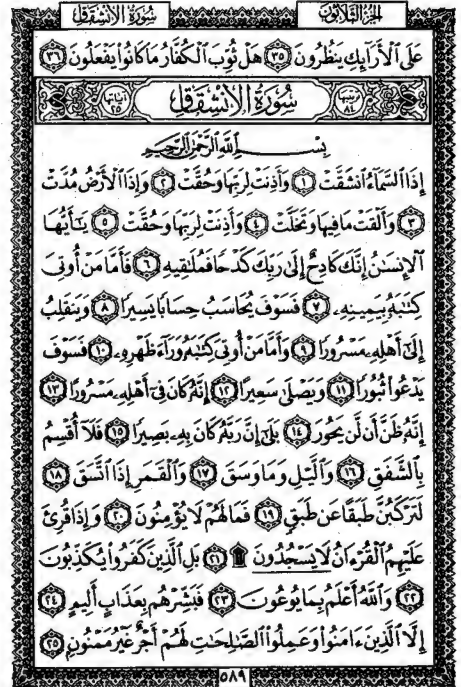 سُورَةُ الانشِقَاقِ الجُزءُ الثَّلَاثُونَ
عَلَى ٱلْأَرَآئِكِ يَنظُرُونَ ٣٥ هَلْ ثُوِّبَ ٱلْكُفَّارُ مَا كَانُوا۟ يَفْعَلُونَ ٣٦
ترتيبها ٨٤ سُورَةُ الانشِقَاقِ آياتها ٢٥
بِسْمِ ٱللَّهِ ٱلرَّحْمَٰنِ ٱلرَّحِيمِ
إِذَا ٱلسَّمَآءُ ٱنشَقَّتْ ١ وَأَذِنَتْ لِرَبِّهَا وَحُقَّتْ ٢ وَإِذَا ٱلْأَرْضُ مُدَّتْ
٣ وَأَلْقَتْ مَا فِيهَا وَتَخَلَّتْ ٤ وَأَذِنَتْ لِرَبِّهَا وَحُقَّتْ ٥ يَٰٓأَيُّهَا
ٱلْإِنسَٰنُ إِنَّكَ كَادِحٌ إِلَىٰ رَبِّكَ كَدْحًا فَمُلَٰقِيهِ ٦ فَأَمَّا مَنْ أُوتِىَ
كِتَٰبَهُۥ بِيَمِينِهِۦ ٧ فَسَوْفَ يُحَاسَبُ حِسَابًا يَسِيرًا ٨ وَيَنقَلِبُ
إِلَىٰٓ أَهْلِهِۦ مَسْرُورًا ٩ وَأَمَّا مَنْ أُوتِىَ كِتَٰبَهُۥ وَرَآءَ ظَهْرِهِۦ ١٠ فَسَوْفَ
يَدْعُوا۟ ثُبُورًا ١١ وَيَصْلَىٰ سَعِيرًا ١٢ إِنَّهُۥ كَانَ فِىٓ أَهْلِهِۦ مَسْرُورًا ١٣
إِنَّهُۥ ظَنَّ أَن لَّن يَحُورَ ١٤ بَلَىٰٓ إِنَّ رَبَّهُۥ كَانَ بِهِۦ بَصِيرًا ١٥ فَلَآ أُقْسِمُ
بِٱلشَّفَقِ ١٦ وَٱلَّيْلِ وَمَا وَسَقَ ١٧ وَٱلْقَمَرِ إِذَا ٱتَّسَقَ ١٨
لَتَرْكَبُنَّ طَبَقًا عَن طَبَقٍ ١٩ فَمَا لَهُمْ لَا يُؤْمِنُونَ ٢٠ وَإِذَا قُرِئَ
عَلَيْهِمُ ٱلْقُرْءَانُ لَا يَسْجُدُونَ ۩ ٢١ بَلِ ٱلَّذِينَ كَفَرُوا۟ يُكَذِّبُونَ
٢٢ وَٱللَّهُ أَعْلَمُ بِمَا يُوعُونَ ٢٣ فَبَشِّرْهُم بِعَذَابٍ أَلِيمٍ ٢٤
إِلَّا ٱلَّذِينَ ءَامَنُوا۟ وَعَمِلُوا۟ ٱلصَّٰلِحَٰتِ لَهُمْ أَجْرٌ غَيْرُ مَمْنُونٍ ٢٥
٥٨٩